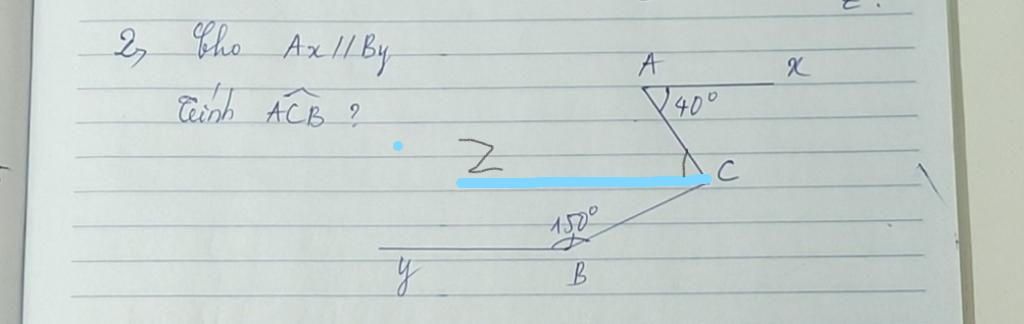 2, Cho Ax // By
Tính ACB ?
A x
40°
Z
C
150°
y B